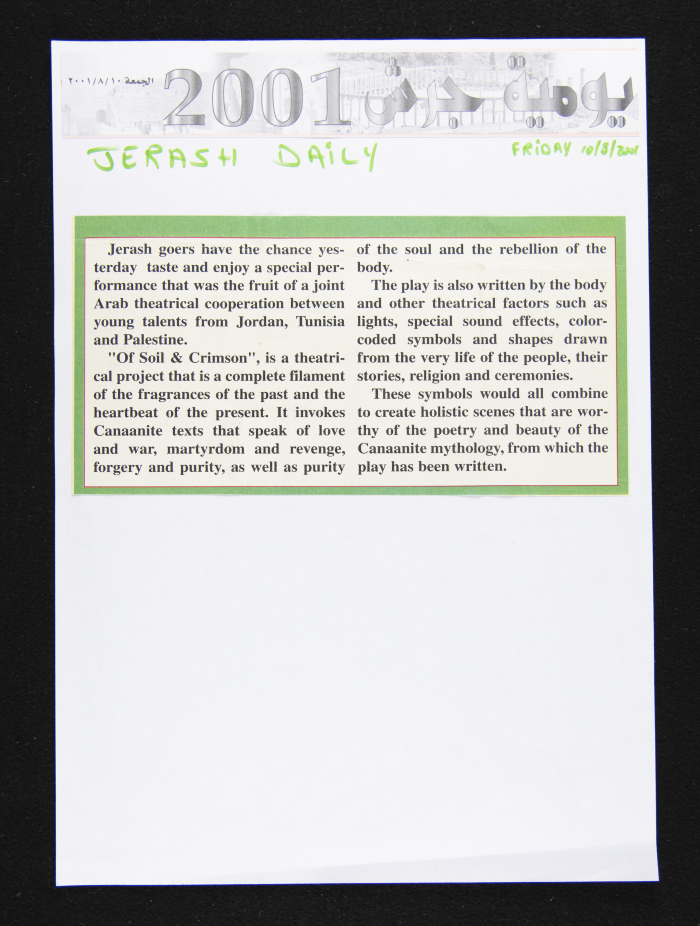 يومية جرش 2001
الجمعة ٢٠٠١/٨/١٠
JERASH DAILY
FRIDAY 10/8/2001
Jerash goers have the chance yes-
terday taste and enjoy a special per-
formance that was the fruit of a joint
Arab theatrical cooperation between
young talents from Jordan, Tunisia
and Palestine.
"Of Soil & Crimson", is a theatri-
cal project that is a complete filament
of the fragrances of the past and the
heartbeat of the present. It invokes
Canaanite texts that speak of love
and war, martyrdom and revenge,
forgery and purity, as well as purity
of the soul and the rebellion of the
body.
The play is also written by the body
and other theatrical factors such as
lights, special sound effects, color-
coded symbols and shapes drawn
from the very life of the people, their
stories, religion and ceremonies.
These symbols would all combine
to create holistic scenes that are wor-
thy of the poetry and beauty of the
Canaanite mythology, from which the
play has been written.